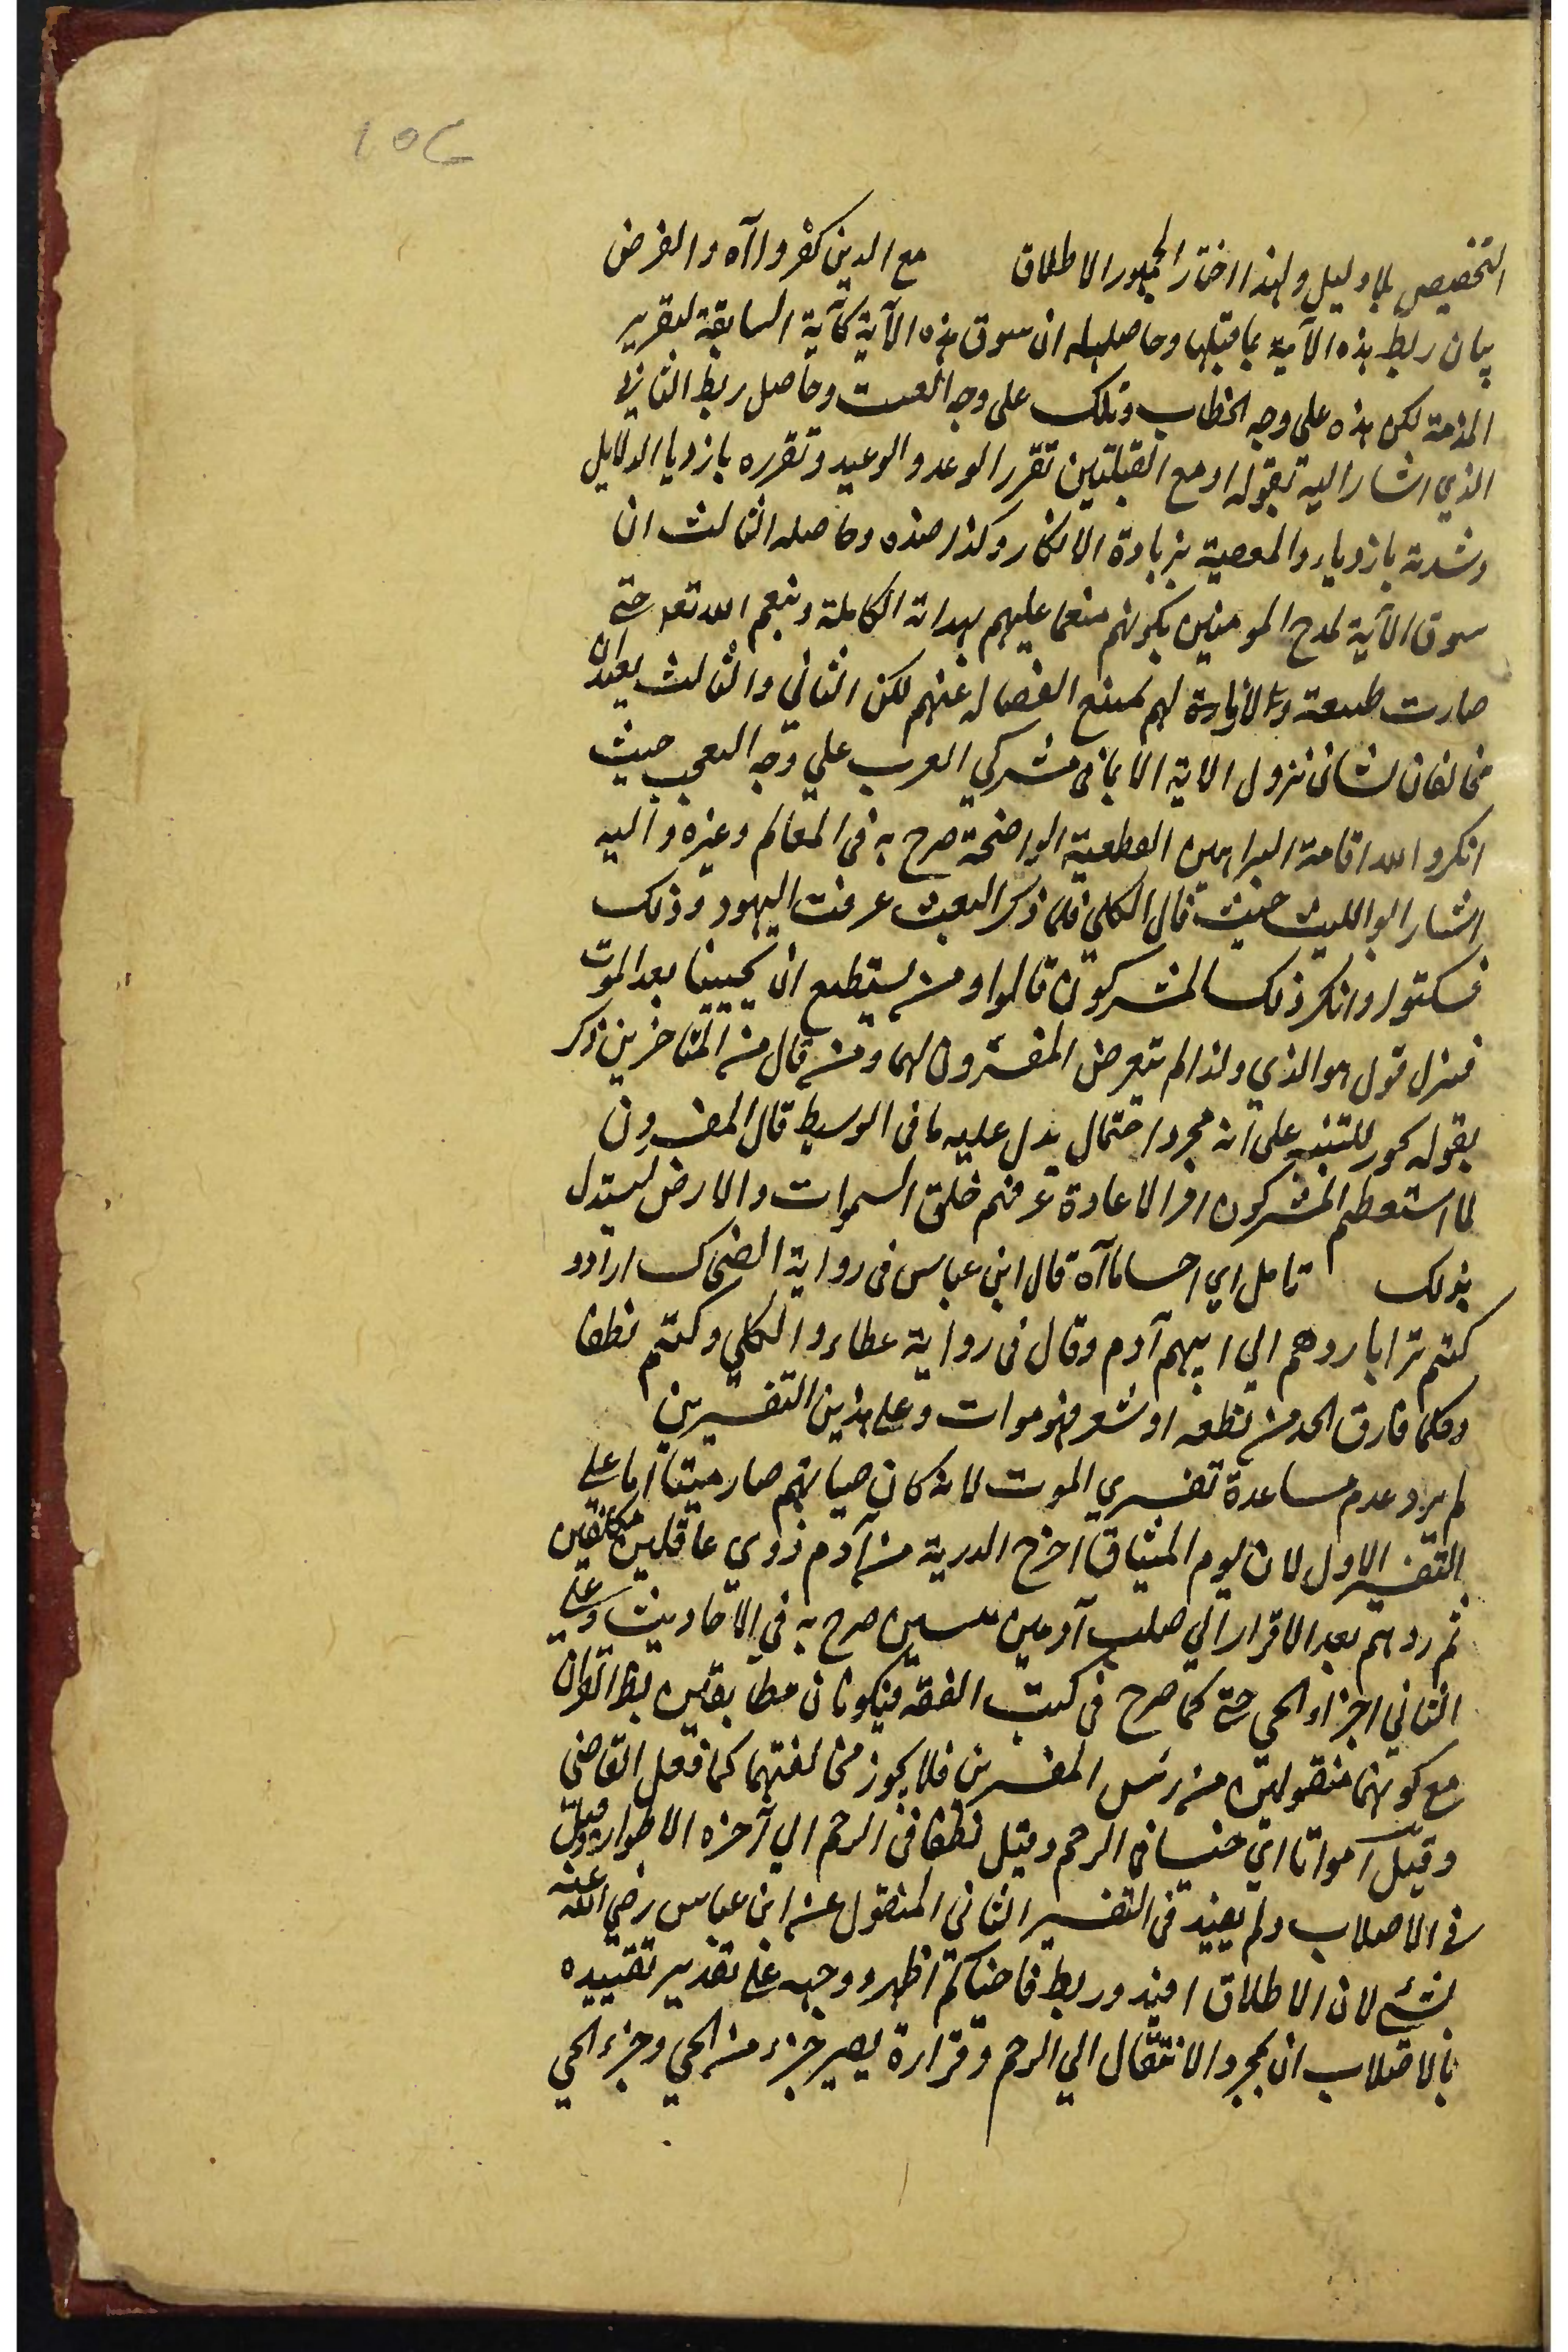 ١٥٦
التخصيص بلا دليل ولهذا اختار الجمهور الاطلاق مع الذين كفروا آه والغرض
بيان ربط هذه الآية بما قبلها وحاصله ان سوق هذه الآية كآية السابقة لتقرير
المذمة لكن هذه على وجه الخطاب وتلك على وجه الغيبت وحاصل ربط الثاني
الذي اشار اليه بقوله او مع القبلتين تقرر الوعد والوعيد وتقرره بازدياد الدلايل
وشدته بازدياد المعصية بزيادة الانكار وكذا ضده وحاصله الثالث ان
سوق الآية لمدح المومنين بكونهم منعما عليهم بهداته الكاملة وبنعم الله تعه حتى
صارت طبيعته لهم يمتنع انفصاله عنهم لكن الثاني والثالث بعيدان
مخالفان لشان نزول الاية لانها في مشركي العرب على وجه التعجب حيث
انكروا الله اقامة البراهين القطعية الواضحة صرح به في المعالم وغيره واليه
اشار ابو الليث حيث قال الكلبي فلما ذكر البعث عرفت اليهود وذلك
فسكتوا وانكر ذلك المشركون قالوا ومن يستطيع ان يحيينا بعد الموت
فنزل قوله هو الذي ولذا لم يتعرض المفسرون لهما ومن قال من المتاخرين ذكر
بقوله يجوز للتنبيه على انه مجرد احتمال يدل عليه ما في الوسيط قال المفسرون
لما استعظم المشركون امر الاعادة عرفهم خلق السموات والارض ليستدل
بذلك تامل اي احساما آه قال ابن عباس في رواية الضحاك ارادو
كنتم ترابا ردهم الى ابيهم آدم وقال في رواية عطاء والكلبي وكنتم نطفا
وكلما فارق الحد من نطفه او شعر فهو موات وعلى هذين التفسيرين
لم يرد عدم مساعدة تفسيري الموت لانه كان حياتهم صار ميتا اما على
التفسير الاول لان يوم الميثاق اخرج الذرية من آدم ذوي عاقلين مكلفين
ثم ردهم بعد الاقرار الى صلب آدم ميتين صرح به في الاحاديث وعلى
الثاني اجزاء الحي حتى كما صرح في كتب الفقه فيكونان مطابقين لظ القران
مع كونهما منقولين من رئس المفسرين فلا يجوز مخالفتهما كما فعل القاضي
وقيل آمواتا اي جنينا في الرحم وقيل نطفا في الرحم الى آخره الاطوار وقيل
في الاصلاب ولم يقيد في التفسير الثاني المنقول عن ابن عباس رضي الله عنه
بشئ لان الاطلاق افيد وربط فاحياكم اظهر ووجهه على تقدير تقييده
بالاصلاب ان بمجرد الانتقال الى الرحم وقراره يصير جزء من الحي وجزء الحي